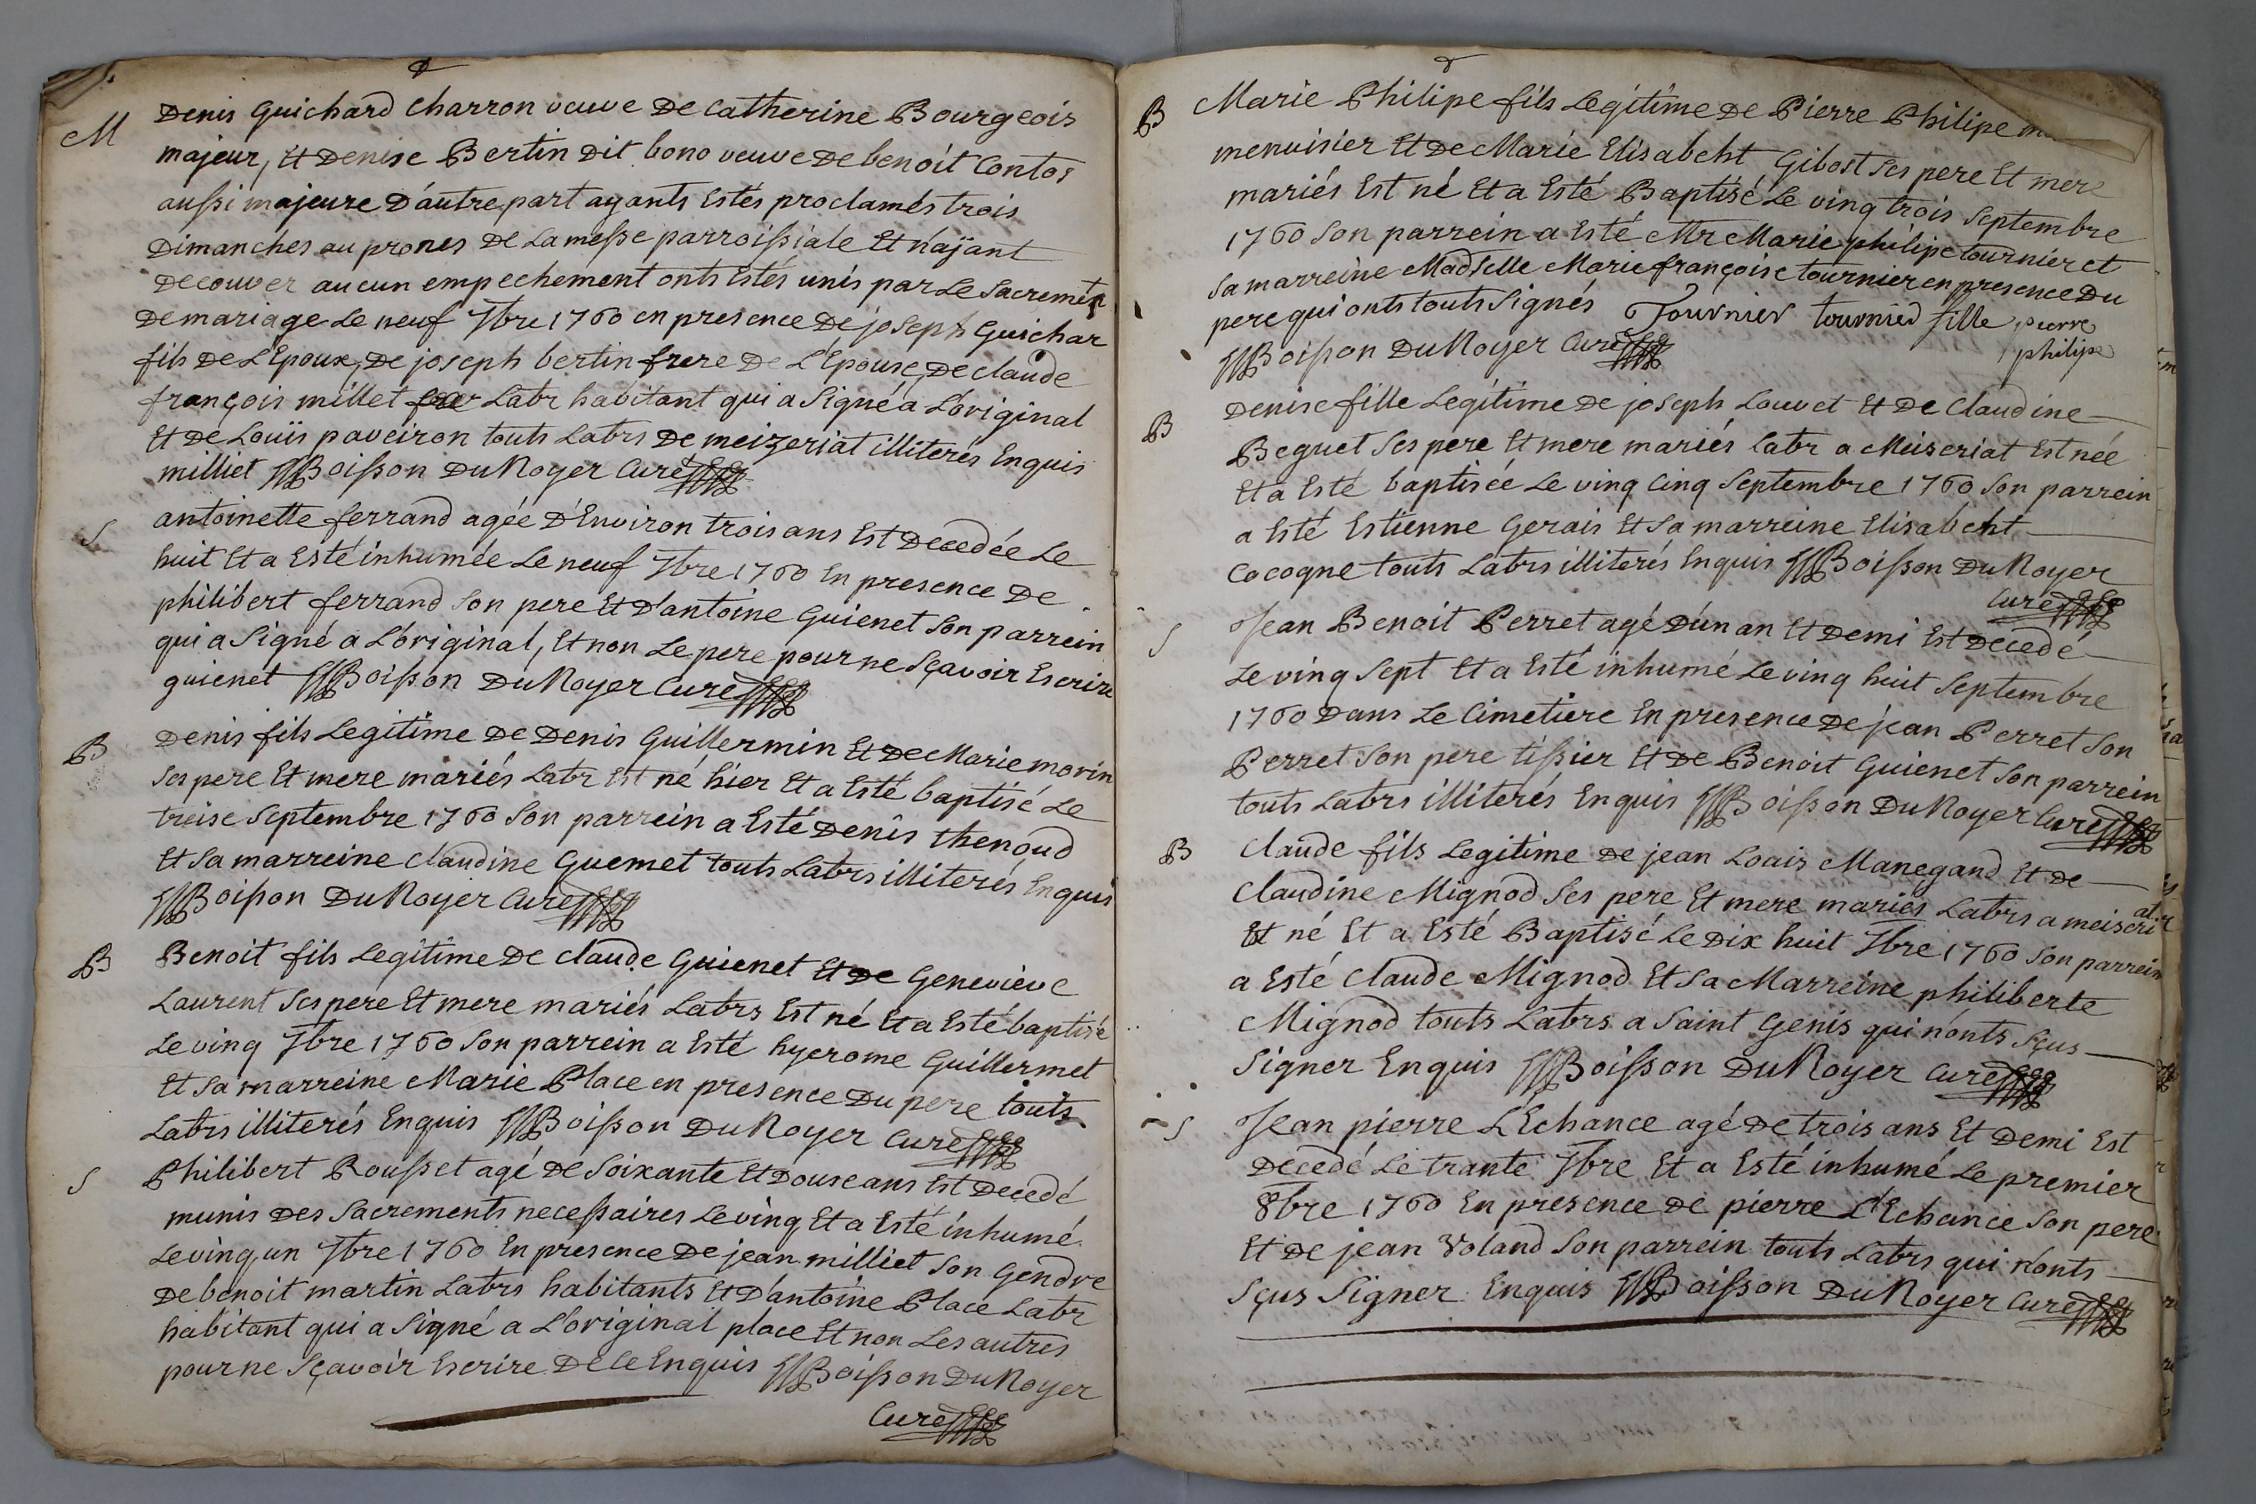 M Denis Guichard Charron veuve De Catherine Bourgeois
majeur, Et Denise Bertin Dit bono veuve De benoit Contos
aussi majeure D'autre part ayants Estés proclamés trois
Dimanches au prones De La messe parroissiale Et n'ajant
Decouver aucun empechement onts Estés unis par Le Sacremt
De mariage Le neuf 7bre 1760 en presence De joseph Guichar
fils De L'Epoux, De joseph bertin frere De L'Epouse, De Claude
françois millet Labr habitant qui a Signé a L'original
Et De Louis paveiron touts Labrs De meizeriat illiterés Enquis
milliet Boisson Du Noyer Curé
S antoinette ferrand agée D'Environ trois ans Est Decedée Le
huit Et a Esté inhumée Le neuf 7bre 1760 En presence De
philibert ferrand Son pere Et D'antoine Guienet Son parrein
qui a Signé a L'original, Et non Le pere pour ne Sçavoir Escrire
guienet Boisson Du Noyer Curé
B Denis fils Legitime De Denis Guillermin Et De Marie morin
Ses pere Et mere mariés Labr Est né hier Et a Esté baptisé Le
treise Septembre 1760 Son parrein a Esté Denis thenoud
Et Sa marreine Claudine Guemet touts Labrs illiterés Enquis
Boisson Du Noyer Curé
B Benoit fils Legitime De Claude Guienet Et De Genevieve
Laurent Ses pere Et mere mariés Labrs Est né Et a Esté baptisé
Le vinq 7bre 1760 Son parrein a Esté hyerome Guillermet
Et Sa marreine Marie Place en presence Du pere touts
Labrs illiterés Enquis Boisson Du Noyer Curé
S Philibert Rousset agé De Soixante Et Douse ans Est Decedé
munis Des Sacrements necessaires Le vinq Et a Esté inhumé
Le vinq un 7bre 1760 En presence De jean milliet Son Gendre
De benoit martin Labrs habitants Et D'antoine Place Labr
habitant qui a Signé a L'original place Et non Les autres
pour ne Sçavoir Escrire De Ce Enquis Boisson Du Noyer
Curé
B Marie Philipe fils Legitime De Pierre Philipe
menuisier Et De Marie Elisabeht Gibost Ses pere Et mere
mariés Est né Et a Esté Baptisé Le vinq trois Septembre
1760 Son parrein a Esté Mr Marie philipe tournier et
Sa marreine Madselle Marie françoise tournier en presence Du
pere qui onts touts Signés Tournier tournier fille pierre
philipe
Boisson Du Noyer Curé
B Denise fille Legitime De joseph Louvet Et De Claudine
Beguet Ses pere Et mere mariés Labr a Meiseriat Est née
Et a Esté baptisée Le vinq Cinq Septembre 1760 Son parrein
a Esté Estienne Gerais Et Sa marreine Elisabeht
Cocogne touts Labrs illiterés Enquis Boisson Du Noyer
Curé
S Jean Benoit Perret agé D'un an Et Demi Est Decedé
Le vinq Sept Et a Esté inhumé Le vinq huit Septembre
1760 Dans Le Cimetiere En presence De jean Perret Son
Perret Son pere tissier Et De Benoit Guienet Son parrein
touts Labrs illiterés Enquis Boisson Du Noyer Curé
B Claude fils Legitime De jean Louis Manegand Et De
Claudine Mignod Ses pere Et mere mariés Labrs a meiseriat
Et né Et a Esté Baptisé Le Dix huit 7bre 1760 Son parrein
a Esté Claude Mignod Et Sa Marreine philiberte
Mignod touts Labrs a Saint Genis qui n'onts Sçus
Signer Enquis Boisson Du Noyer Curé
S Jean pierre L'Echance agé De trois ans Et Demi Est
Decedé Le trante 7bre Et a Esté inhumé Le premier
8bre 1760 En presence De pierre L'Echance Son pere
Et De jean Voland Son parrein touts Labrs qui n'onts
Sçus Signer Enquis Boisson Du Noyer Curé